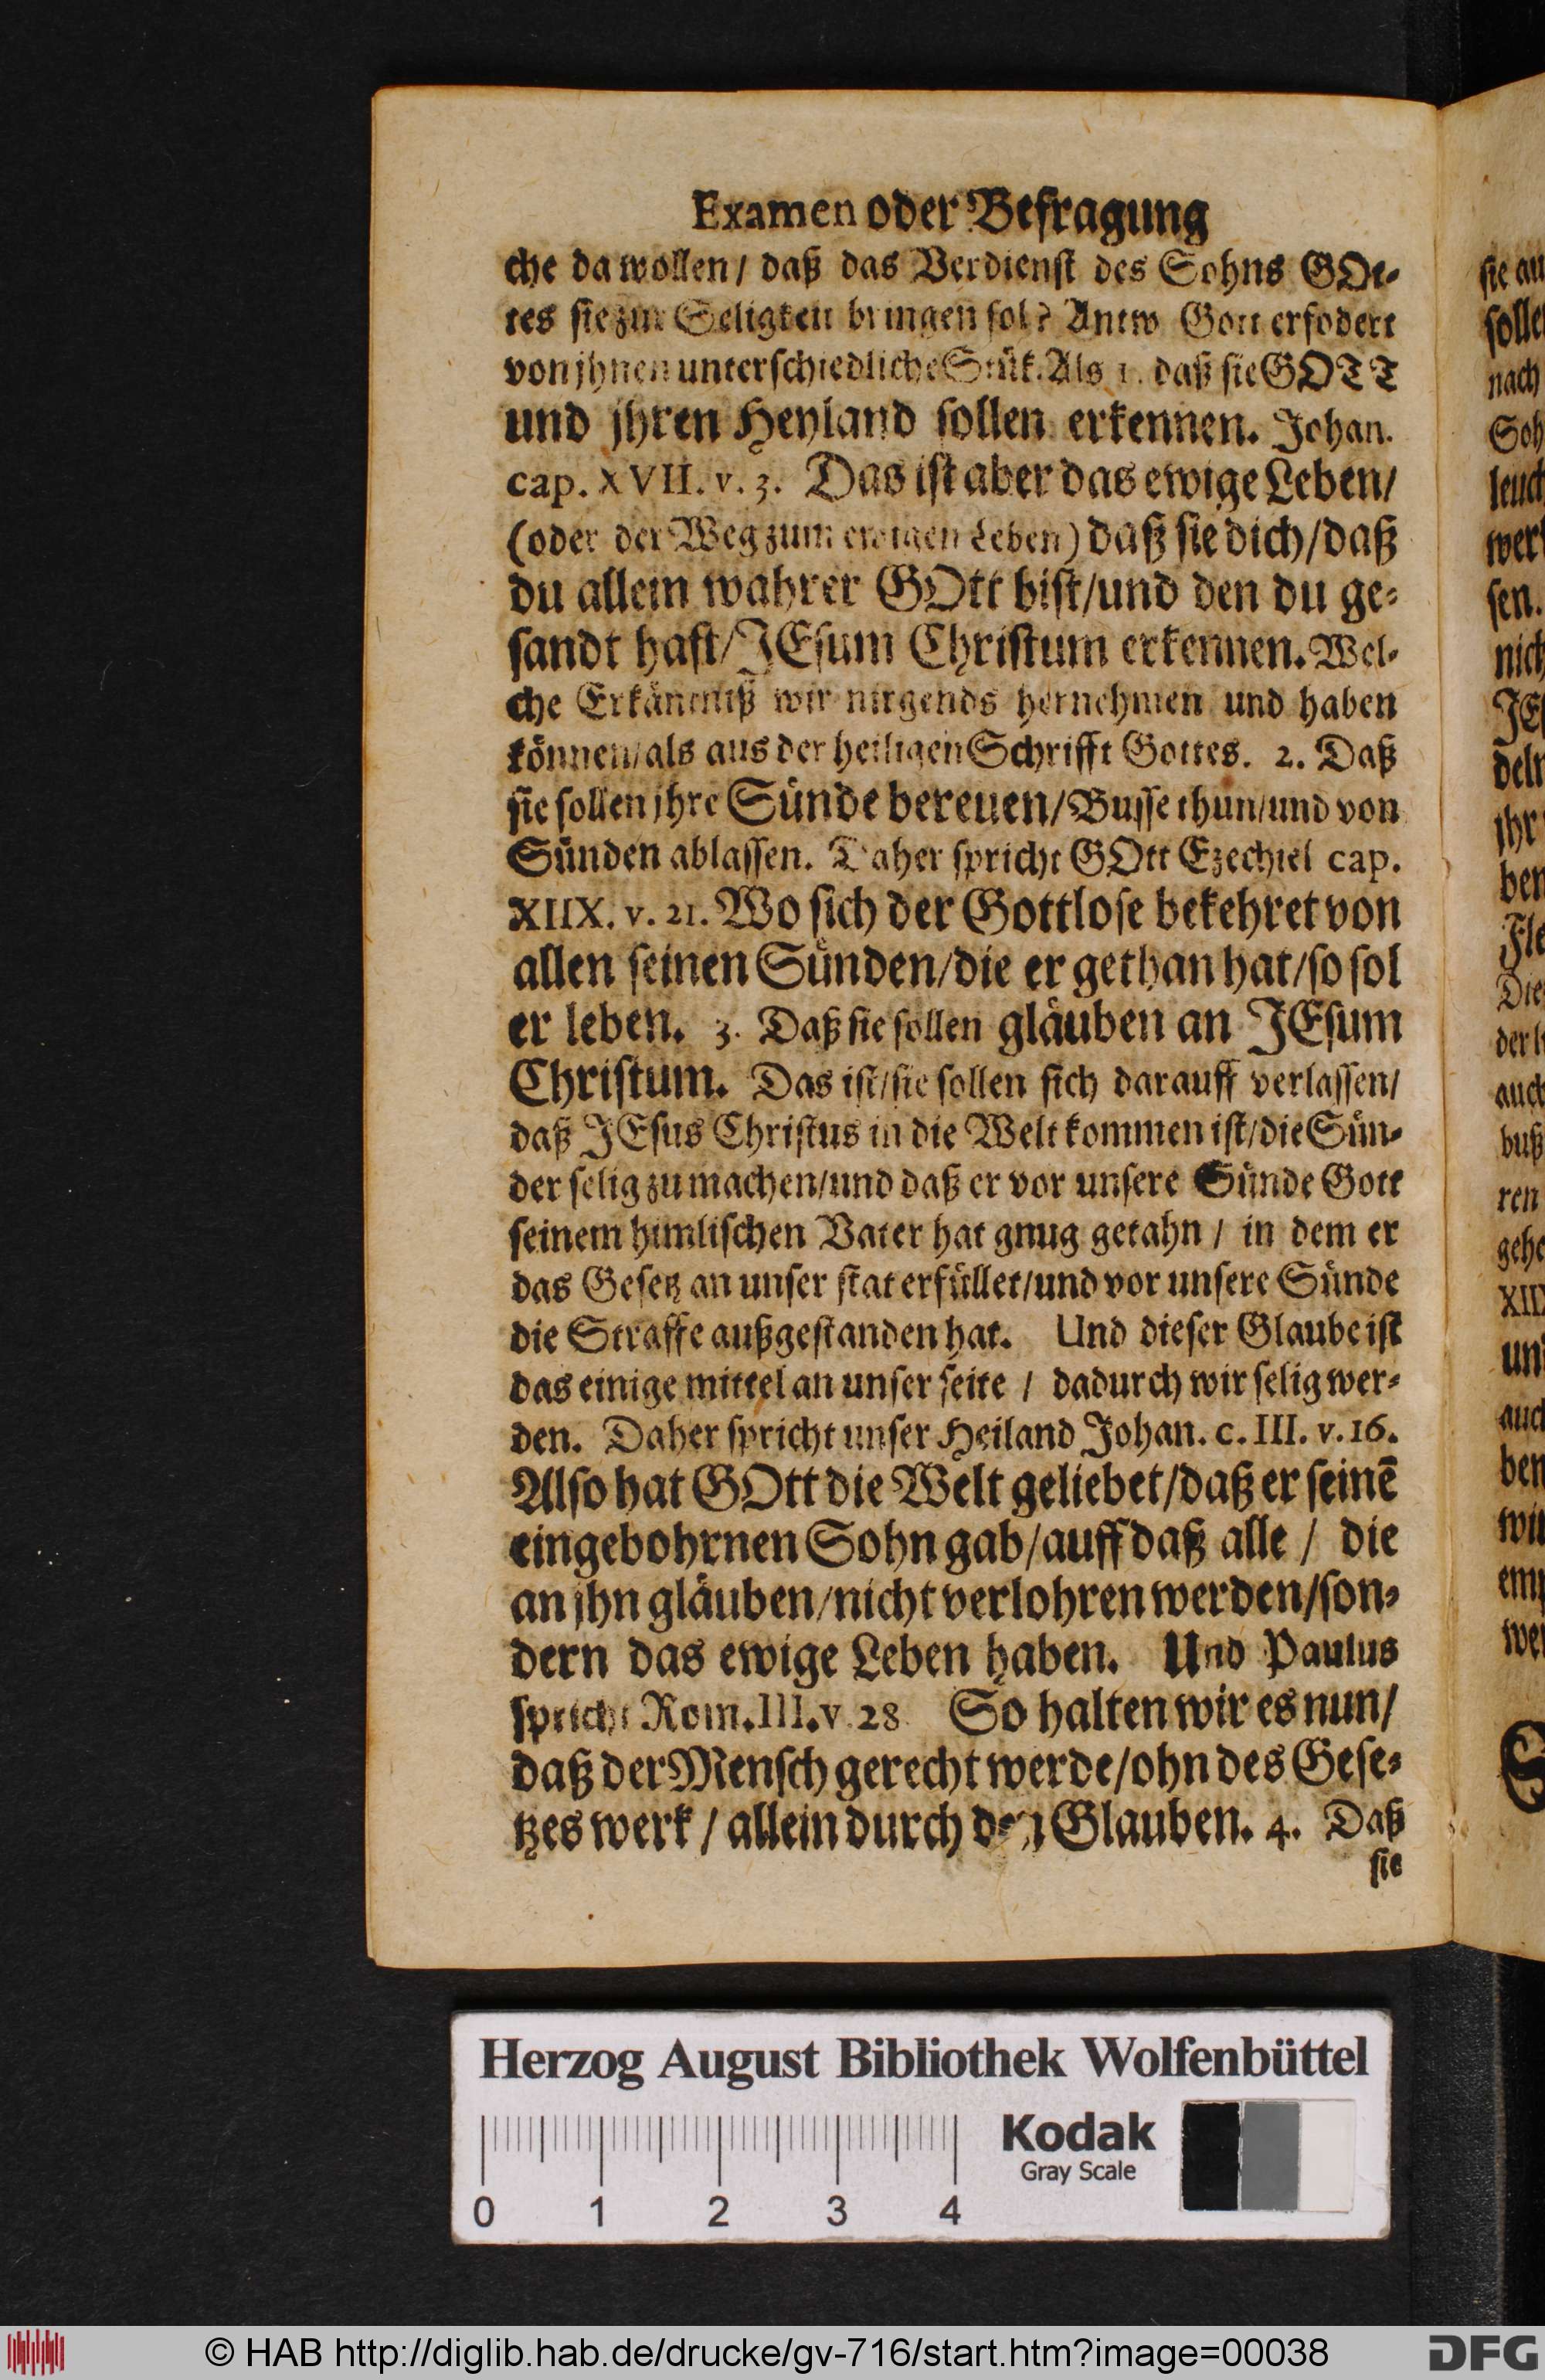 Examen oder Befragung
che da wollen / daß das Verdienst des Sohns GOt-
tes sie zur Seligkeit bringen sol? Antw Gott erfodert
von jhnen unterschiedliche Stük. Als 1. daß sie GOTT
und jhren Heyland sollen erkennen. Johan.
cap. XVII. v. 3. Das ist aber das ewige Leben /
(oder der Weg zum ewigen Leben) daß sie dich / daß
du allein wahrer GOtt bist / und den du ge-
sandt hast / JEsum Christum erkennen. Wel-
che Erkäntniß wir nirgends hernehmen und haben
können / als aus der heiligen Schrifft Gottes. 2. Daß
sie sollen jhre Sünde bereuen / Busse thun / und von
Sünden ablassen. Daher spricht GOtt Ezechiel cap.
XIIX. v. 21. Wo sich der Gottlose bekehret von
allen seinen Sünden / die er gethan hat / so sol
er leben. 3. Daß sie sollen gläuben an JEsum
Christum. Das ist / sie sollen sich darauff verlassen /
daß JEsus Christus in die Welt kommen ist / die Sün-
der selig zu machen / und daß er vor unsere Sünde Gott
seinem himlischen Vater hat gnug getahn / in dem er
das Gesetz an unser stat erfüllet / und vor unsere Sünde
die Straffe außgestanden hat. Und dieser Glaube ist
das einige mittel an unser seite / dadurch wir selig wer-
den. Daher spricht unser Heiland Johan. c. III. v. 16.
Also hat GOtt die Welt geliebet / daß er seinē
eingebohrnen Sohn gab / auff daß alle / die
an jhn gläuben / nicht verlohren werden / son-
dern das ewige Leben haben. Und Paulus
spricht Rom. III. v. 28 So halten wir es nun /
daß der Mensch gerecht werde / ohn des Gese-
tzes werk / allein durch den Glauben. 4. Daß
sie
Herzog August Bibliothek Wolfenbüttel
Kodak
Gray Scale
0 1 2 3 4
© HAB http://diglib.hab.de/drucke/gv-716/start.htm?image=00038
DFG